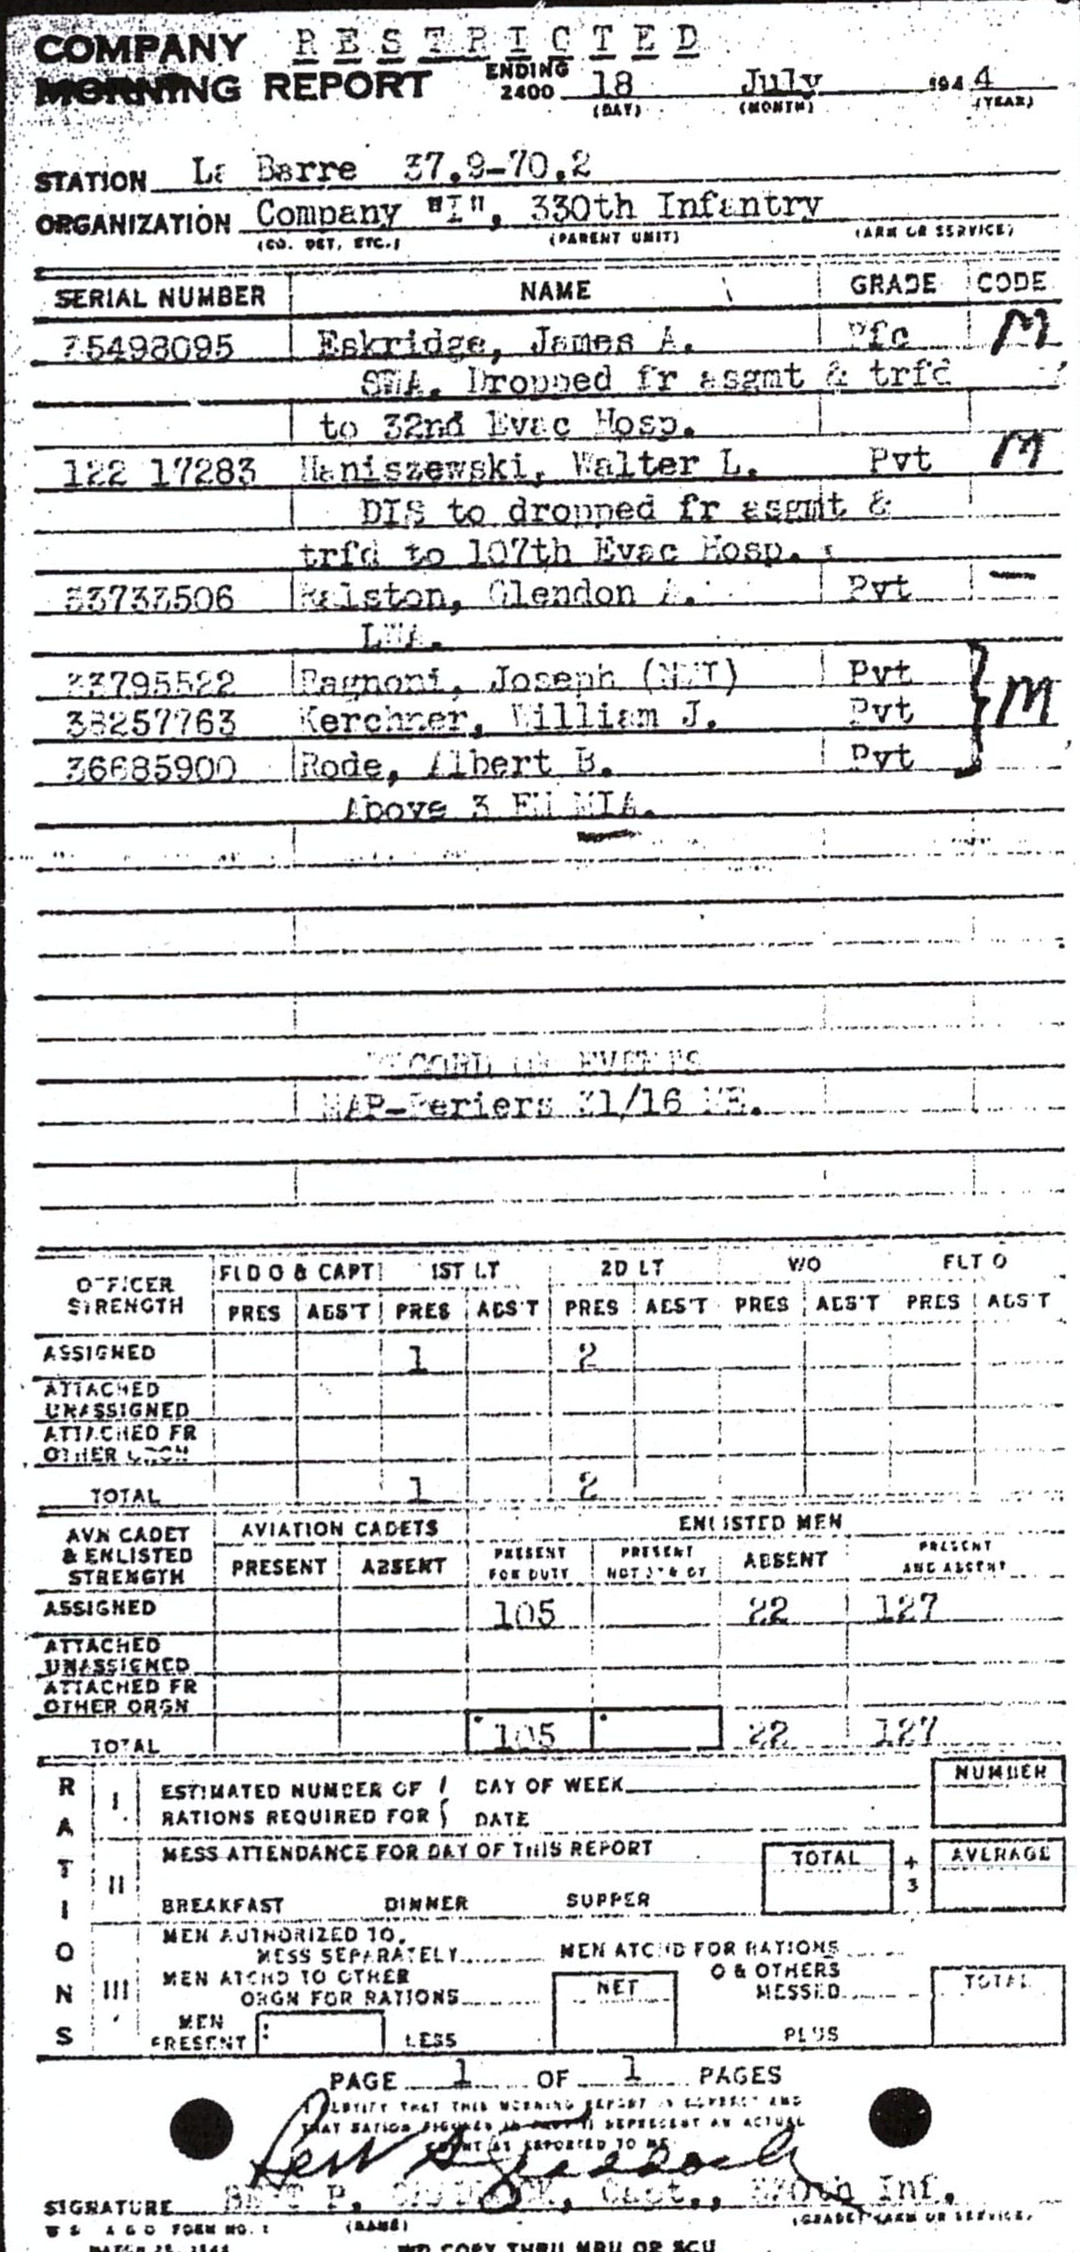 COMPANY RESTRICTED
MORNING REPORT ENDING 2400 18 July 1944
(DAY) (MONTH) (YEAR)
STATION La Barre 37.9-70.2
ORGANIZATION Company "I", 330th Infantry
(CO. DET, ETC.) (PARENT UNIT) (ARM OR SERVICE)
SERIAL NUMBER NAME GRADE CODE
35498095 Eskridge, James A. Pfc M
SWA. Dropped fr asgmt & trfd
to 32nd Evac Hosp.
122 17283 Maniszewski, Walter L. Pvt M
DIS to dropped fr asgmt &
trfd to 107th Evac Hosp.
33733506 Ralston, Glendon A. Pvt —
LWA.
33795522 Pagnoni, Joseph (NMI) Pvt
38257763 Kerchner, William J. Pvt } M
36685900 Rode, Albert B. Pvt
Above 3 EM MIA.
RECORD OF EVENTS
MAP-Periers 31/16 NE.
OFFICER STRENGTH FLD O & CAPT 1ST LT 2D LT W/O FLT O
PRES ABS'T PRES ABS'T PRES ABS'T PRES ABS'T PRES ABS'T
ASSIGNED 1 2
ATTACHED UNASSIGNED
ATTACHED FR OTHER ORGN
TOTAL 1 2
AVN CADET & ENLISTED STRENGTH AVIATION CADETS ENLISTED MEN
PRESENT ABSENT PRESENT FOR DUTY PRESENT NOT FOR DY ABSENT PRESENT AND ABSENT
ASSIGNED 105 22 127
ATTACHED UNASSIGNED
ATTACHED FR OTHER ORGN
TOTAL 105 22 127
RATIONS
I ESTIMATED NUMBER OF DAY OF WEEK NUMBER
RATIONS REQUIRED FOR DATE
II MESS ATTENDANCE FOR DAY OF THIS REPORT TOTAL ÷ 3 AVERAGE
BREAKFAST DINNER SUPPER
III MEN AUTHORIZED TO
MESS SEPARATELY MEN ATCHD FOR RATIONS
MEN ATCHD TO OTHER O & OTHERS
ORGN FOR RATIONS NET MESSED TOTAL
MEN PRESENT LESS PLUS
PAGE 1 OF 1 PAGES
I CERTIFY THAT THIS MORNING REPORT IS CORRECT AND
THAT RATION FIGURES IN PART II REPRESENT AN ACTUAL
COUNT AS REPORTED TO ME
SIGNATURE P. Capt., 330th Inf.
(NAME) (GRADE) (ARM OR SERVICE)
W D A G O FORM NO. 1
MARCH
WD COPY THRU MRU OR SCU